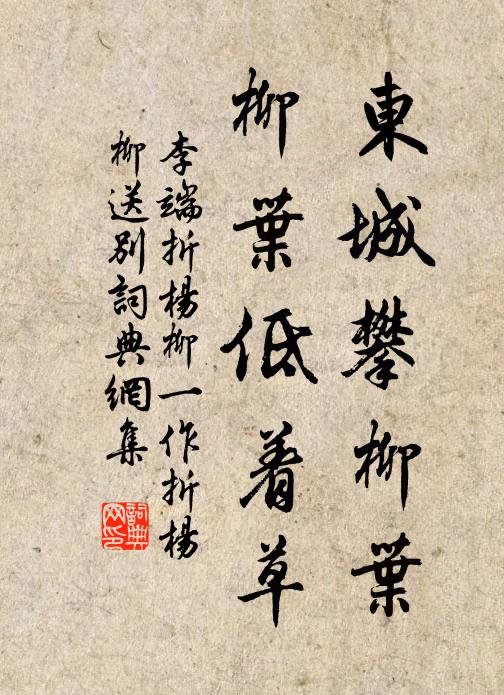 東城攀柳葉
柳葉低着草
李端折楊柳一作折楊
柳送別詞典網集
詞典
网印